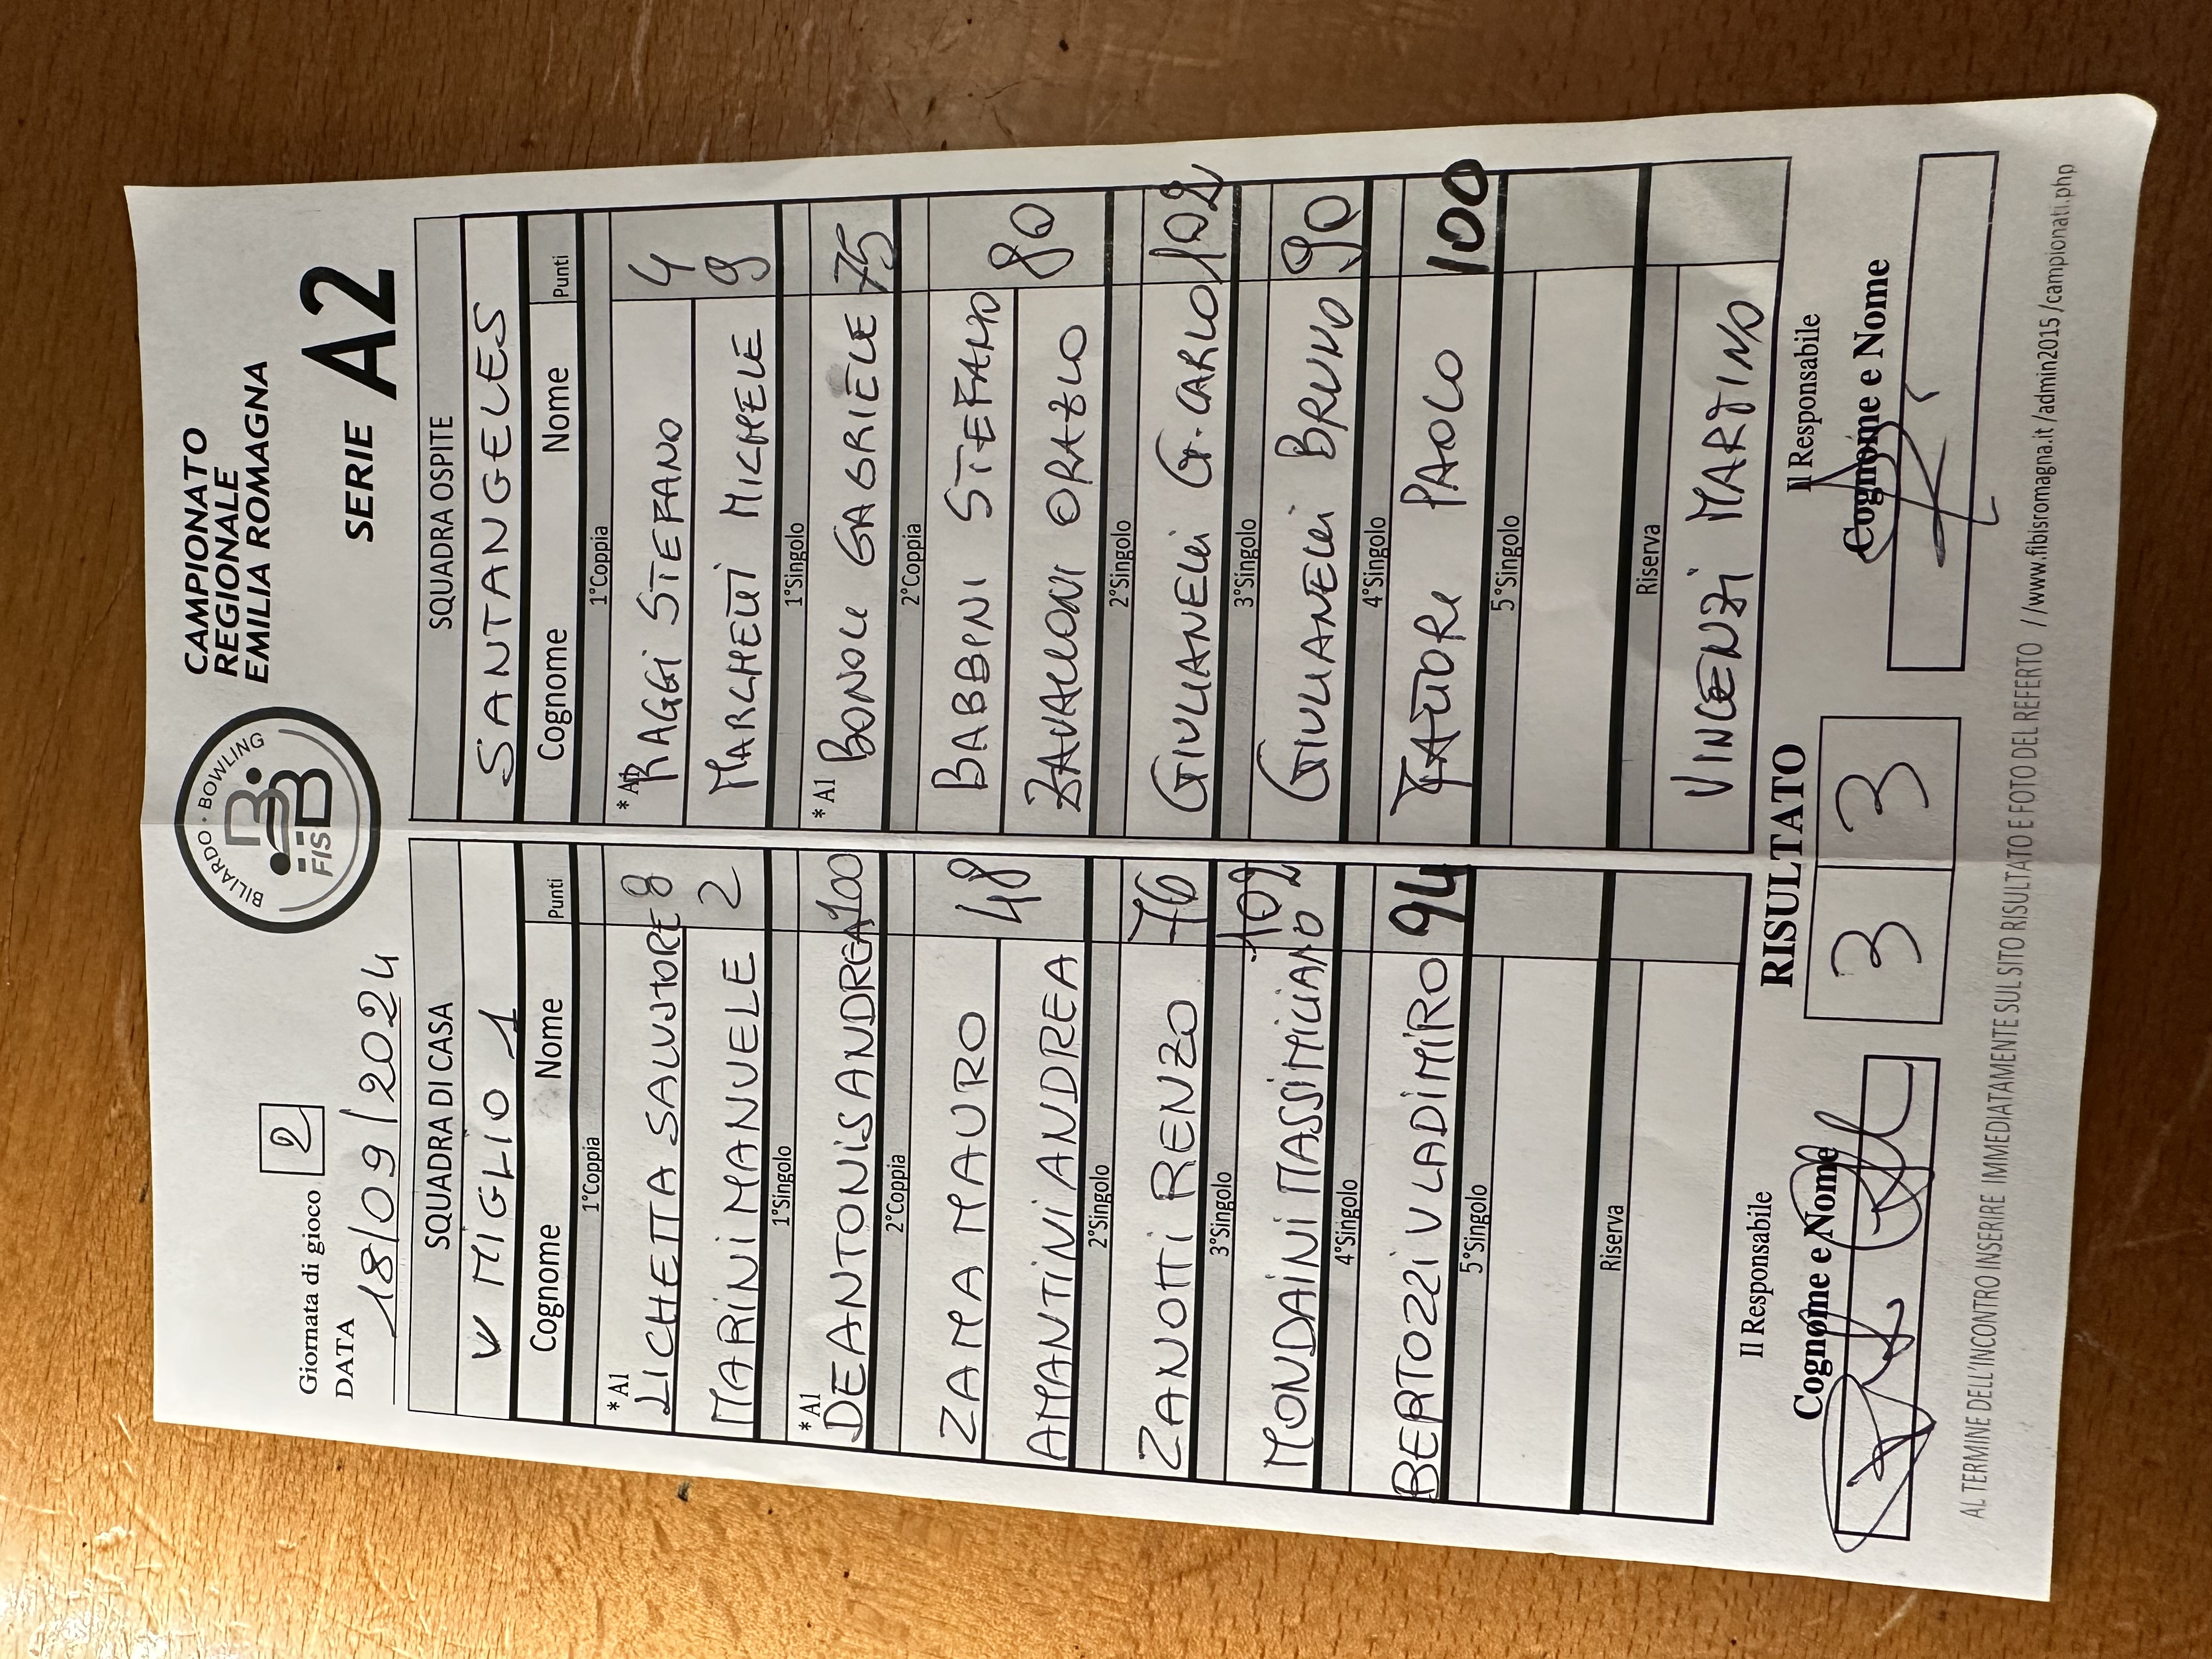 CAMPIONATO
REGIONALE
EMILIA ROMAGNA
SERIE A2
BILIARDO · BOWLING
FISBB
Giornata di gioco 2
DATA
18/09/2024
SQUADRA DI CASA
V MIGLIO 1
Cognome Nome Punti
1°Coppia
* A1
LICHETTA SALVATORE 8
MARINI MANUELE 2
1°Singolo
* A1
DEANTONIS ANDREA 100
2°Coppia
ZAMA MAURO 48
AMANTINI ANDREA
2°Singolo
ZANOTTI RENZO 76
3°Singolo
MONDAINI MASSIMILIANO 102
4°Singolo
BERTOZZI VLADIMIRO 94
5°Singolo
Riserva
SQUADRA OSPITE
SANTANGELES
Cognome Nome Punti
1°Coppia
* A1
RAGGI STEFANO 4
MARCHETTI MICHELE 9
1°Singolo
* A1
BONOLI GABRIELE 75
2°Coppia
BABBINI STEFANO 80
ZAVALLONI ORAZIO
2°Singolo
GIULIANELLI G. CARLO 102
3°Singolo
GIULIANELLI BRUNO 90
4°Singolo
PAOLO 100
5°Singolo
Riserva
VINCENZI MARTINO
RISULTATO
3 3
Il Responsabile
Cognome e Nome
Il Responsabile
Cognome e Nome
AL TERMINE DELL'INCONTRO INSERIRE IMMEDIATAMENTE SUL SITO RISULTATO E FOTO DEL REFERTO //www.fibisromagna.it/admin2015/campionati.php